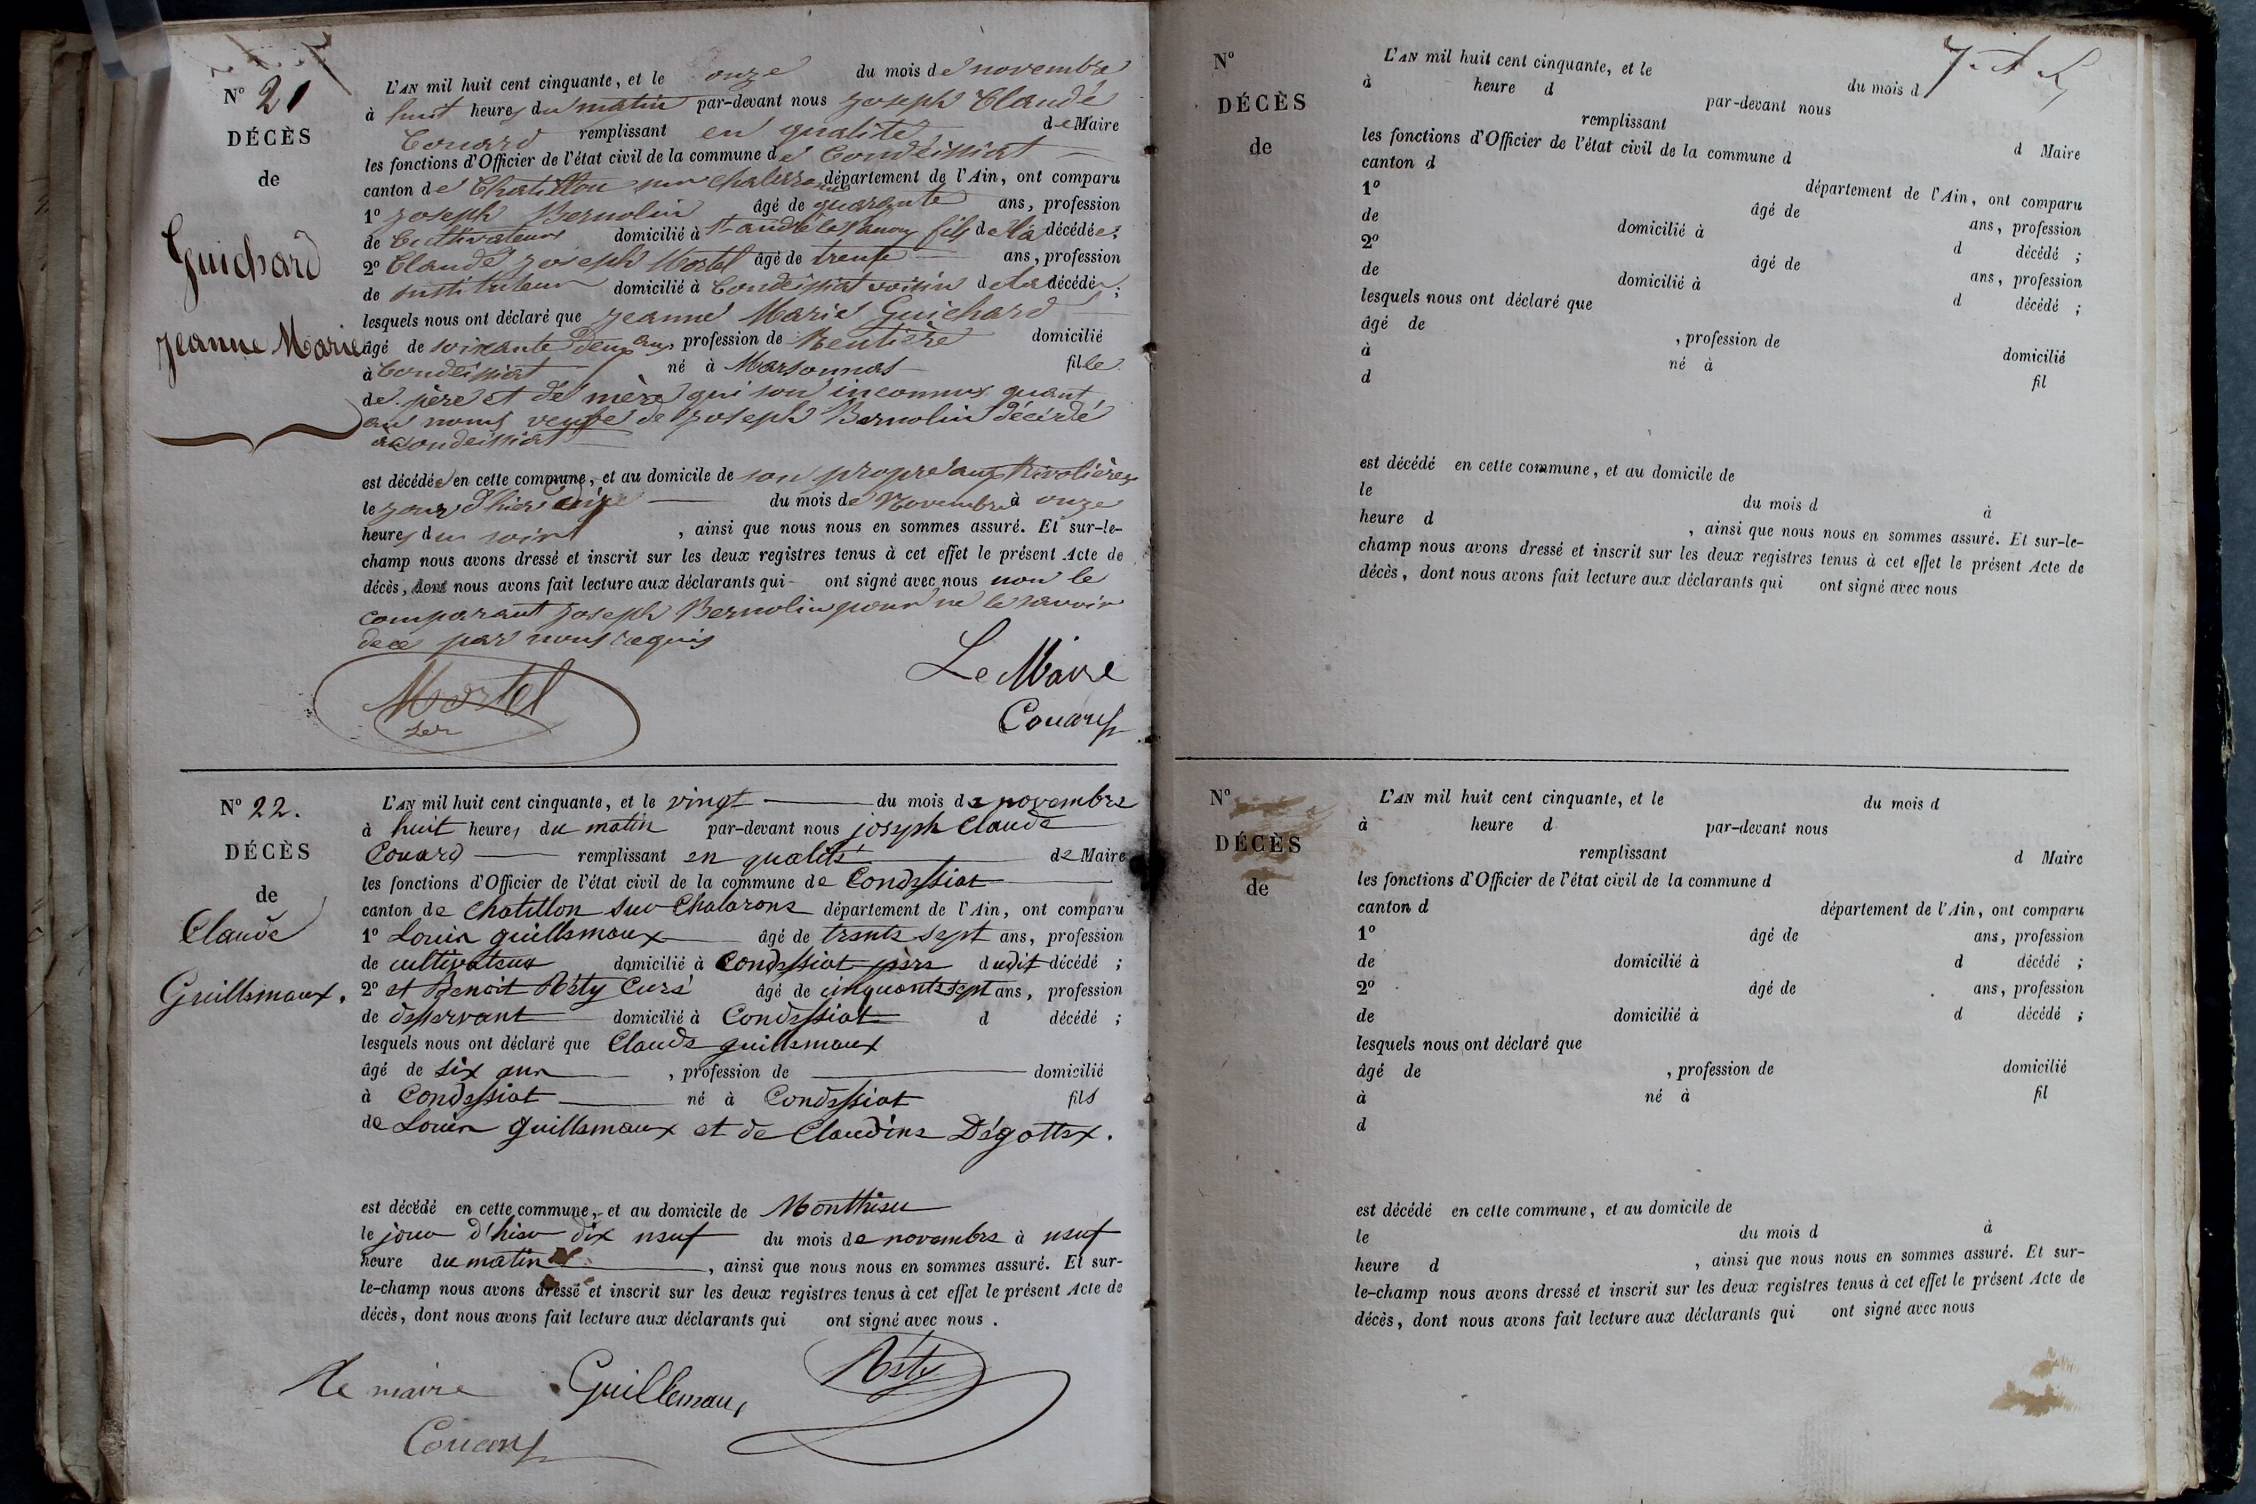 N° 21
DÉCÈS
de
Guichard
Jeanne Marie
L'AN mil huit cent cinquante, et le onze du mois de novembre
à huit heures du matin par-devant nous Joseph Claude
Couard remplissant en qualité de Maire
les fonctions d'Officier de l'état civil de la commune de Condeissiat
canton de Chatillon sur Chalaronne département de l'Ain, ont comparu
1° Joseph Bernolin âgé de quarante ans, profession
de Cultivateur domicilié à St andré le fils de la décédée;
2° Claude Joseph Mortel âgé de trente ans, profession
de instituteur domicilié à Condeissiat voisin de la décédée;
lesquels nous ont déclaré que Jeanne Marie Guichard
âgé de soixante deux ans, profession de Rentière domicilié
à Condeissiat né à Marsonnas fille
de père et de mère qui son inconnus quant
au noms veuve de Joseph Bernolin décédé
à Condeissiat
est décédée en cette commune, et au domicile de son propre aux Rivolières
le jour d'hier du mois de Novembre à onze
heures du soir, ainsi que nous nous en sommes assuré. Et sur-le-
champ nous avons dressé et inscrit sur les deux registres tenus à cet effet le présent Acte de
décès, dont nous avons fait lecture aux déclarants qui ont signé avec nous non le
comparant Joseph Bernolin pour ne le savoir
de ce par nous requis
Mortel
Le Maire
Couard
N° 22.
DÉCÈS
de
Claude
Guillemaux.
L'AN mil huit cent cinquante, et le vingt du mois de novembre
à huit heures, du matin par-devant nous joseph Claude
Couard remplissant en qualité de Maire
les fonctions d'Officier de l'état civil de la commune de Condessiat
canton de Chatillon sur Chalarone département de l'Ain, ont comparu
1° Louis guillemaux âgé de trente sept ans, profession
de cultivateur domicilié à Condessiat père dudit décédé ;
2° et Benoit Néty Curé âgé de cinquante sept ans, profession
de desservant domicilié à Condessiat d décédé ;
lesquels nous ont déclaré que Claude guillemaux
âgé de six ans, profession de domicilié
à Condessiat né à Condessiat fils
de Louis guillemaux et de Claudine Dégottex.
est décédé en cette commune, et au domicile de Monthieu
le jour d'hier dix neuf du mois de novembre à neuf
heure du matin, ainsi que nous nous en sommes assuré. Et sur-
le-champ nous avons dressé et inscrit sur les deux registres tenus à cet effet le présent Acte de
décès, dont nous avons fait lecture aux déclarants qui ont signé avec nous.
Le maire Guillemau Néty
Couard
N°
DÉCÈS
de
L'AN mil huit cent cinquante, et le du mois d
à heure d par-devant nous
remplissant d Maire
les fonctions d'Officier de l'état civil de la commune d
canton d département de l'Ain, ont comparu
1° âgé de ans, profession
de domicilié à d décédé ;
2° âgé de ans, profession
de domicilié à d décédé ;
lesquels nous ont déclaré que
âgé de , profession de domicilié
à né à fil
d
est décédé en cette commune, et au domicile de
le du mois d à
heure d , ainsi que nous nous en sommes assuré. Et sur-le-
champ nous avons dressé et inscrit sur les deux registres tenus à cet effet le présent Acte de
décès, dont nous avons fait lecture aux déclarants qui ont signé avec nous
N°
DÉCÈS
de
L'AN mil huit cent cinquante, et le du mois d
à heure d par-devant nous
remplissant d Maire
les fonctions d'Officier de l'état civil de la commune d
canton d département de l'Ain, ont comparu
1° âgé de ans, profession
de domicilié à d décédé ;
2° âgé de ans, profession
de domicilié à d décédé ;
lesquels nous ont déclaré que
âgé de , profession de domicilié
à né à fil
d
est décédé en cette commune, et au domicile de
le du mois d à
heure d , ainsi que nous nous en sommes assuré. Et sur-
le-champ nous avons dressé et inscrit sur les deux registres tenus à cet effet le présent Acte de
décès, dont nous avons fait lecture aux déclarants qui ont signé avec nous